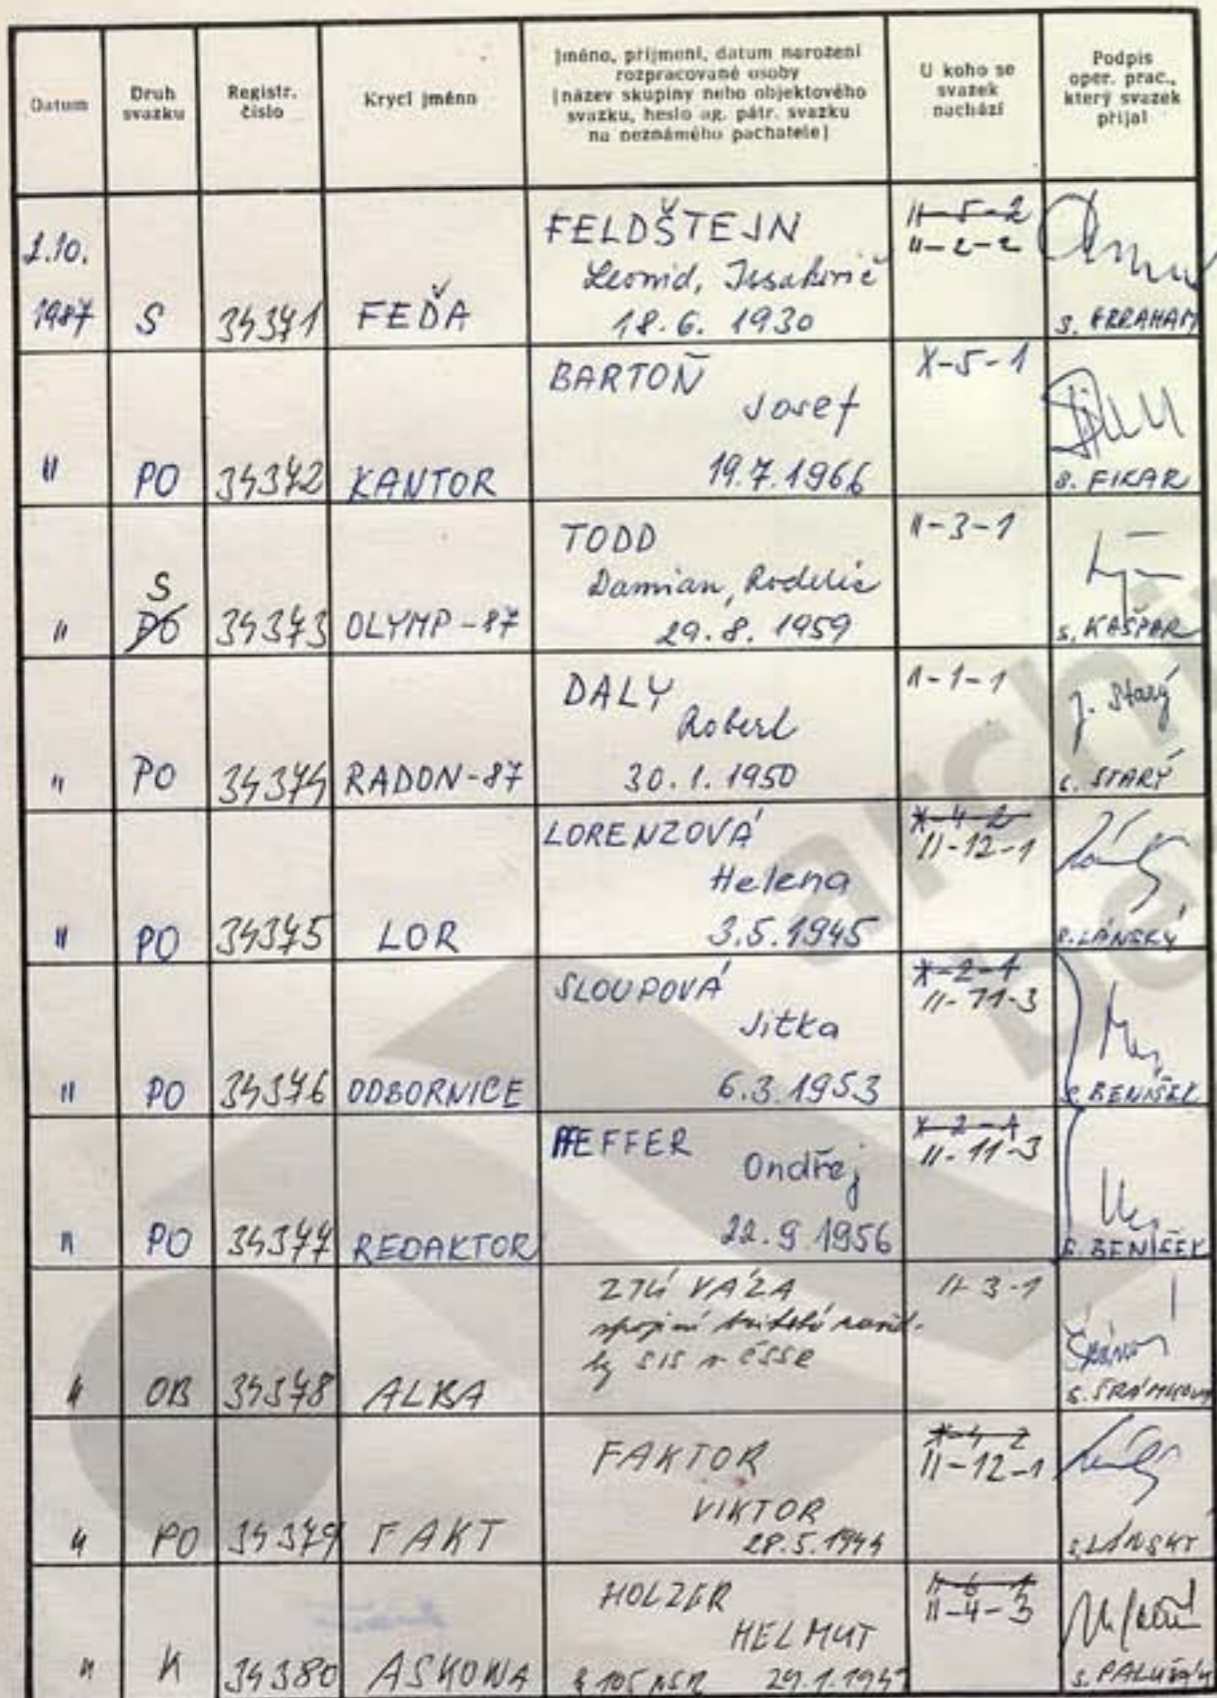 Datum
Druh svazku
Registr. číslo
Krycí jméno
Jméno, příjmení, datum narození
rozpracované osoby
(název skupiny nebo objektového
svazku, heslo ag. pátr. svazku
na neznámého pachatele)
U koho se
svazek
nachází
Podpis
oper. prac.,
který svazek
přijal
1.10.
1987 S 34371 FEĎA
FELDŠTEJN
Leonid, Issakovič
18.6. 1930
II-5-2
II-2-2
" PO 34372 KANTOR
BARTOŇ
Josef
19.7.1966
X-5-1
S. FIKAR
" S PO 34373 OLYMP-87
TODD
Damian, Roderic
29.8. 1959
II-3-1
S. KAŠPAR
" PO 34374 RADON-87
DALY
Robert
30.1.1950
1-1-1
J. Starý
S. STARÝ
" PO 34375 LOR
LORENZOVÁ
Helena
3.5.1945
X-4-2
II-12-1
S. LÁNSKÝ
" PO 34376 ODBORNICE
SLOUPOVÁ
Jitka
6.3.1953
X-2-1
II-11-3
S. BENÍŠEK
" PO 34377 REDAKTOR
PFEFFER
Ondřej
22.9.1956
X-2-1
II-11-3
S. BENÍŠEK
" OB 34378 ALBA
VÁZA
spojení britské
SIS v ČSSR
II-3-1
S. ŠRÁMKOVÁ
" PO 34379 FAKT
FAKTOR
VIKTOR
28.5.1944
X-4-2
II-12-1
S. LÁNSKÝ
" K 34380 ASKOWA
HOLZER
HELMUT
§ 105 29.1.194
II-4-3
S.